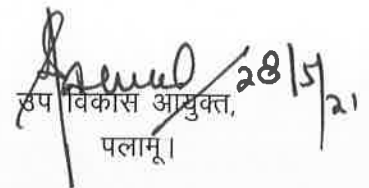 28/5/21
उप विकास आयुक्त,
पलामू।